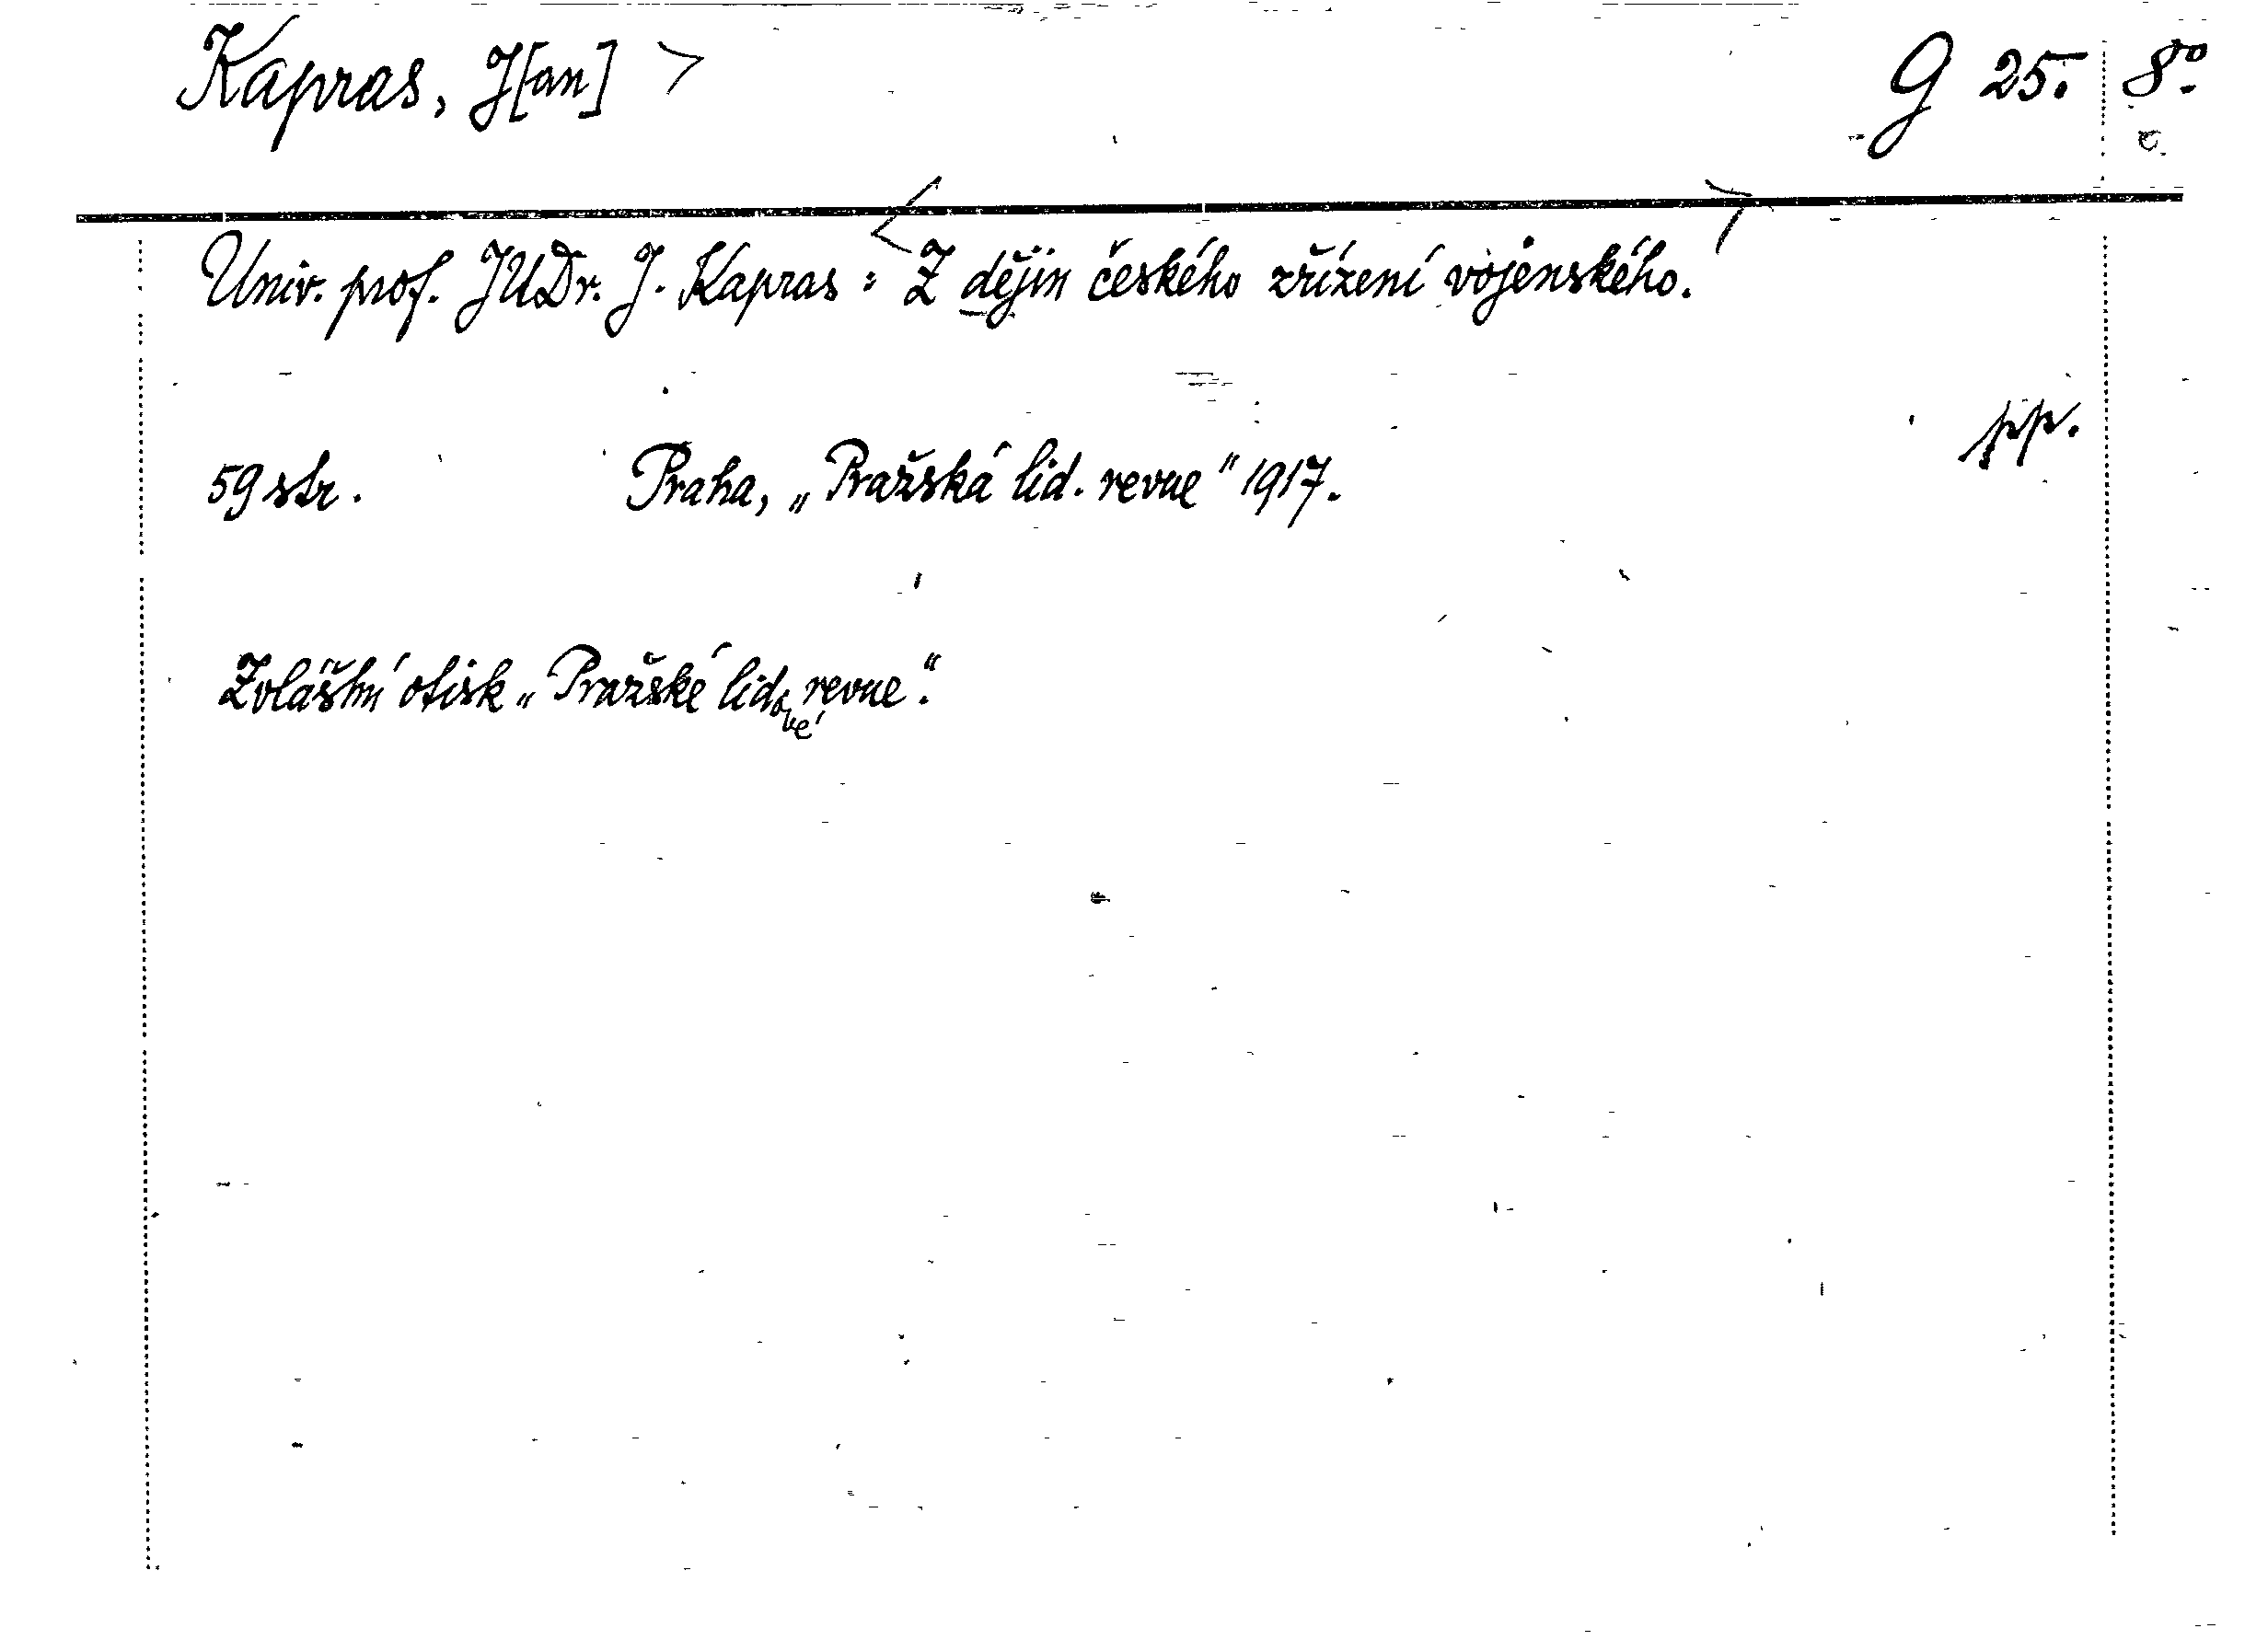 Kapras, J[an] > G 25. 8°.
Univ. prof. JUDr. J. Kapras: <Z dějin českého zřízení vojenského.>
pp.
59 str. Praha, „Pražská lid. revue" 1917.
Zvláštní otisk „Pražské lidové revue".